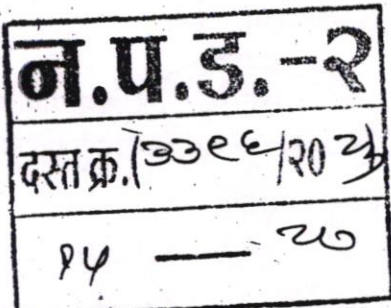 न.प.ड.-२
दस्त क्र.(३३९६/२०२३)
१५ — २७